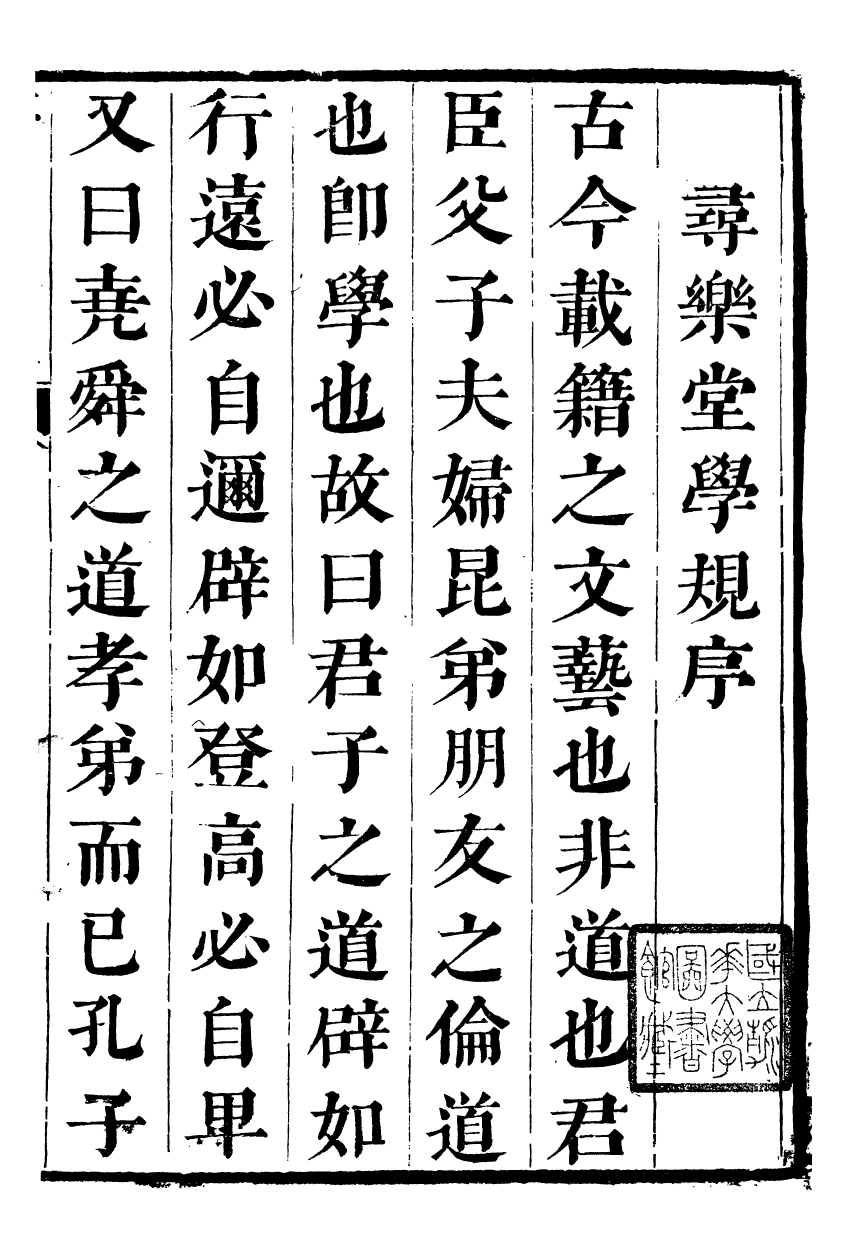 尋樂堂學規序
古今載籍之文藝也非道也君
臣父子夫婦昆弟朋友之倫道
也卽學也故曰君子之道辟如
行遠必自邇辟如登高必自卑
又曰堯舜之道孝弟而已孔子
國立清
華大學
圖書
館藏